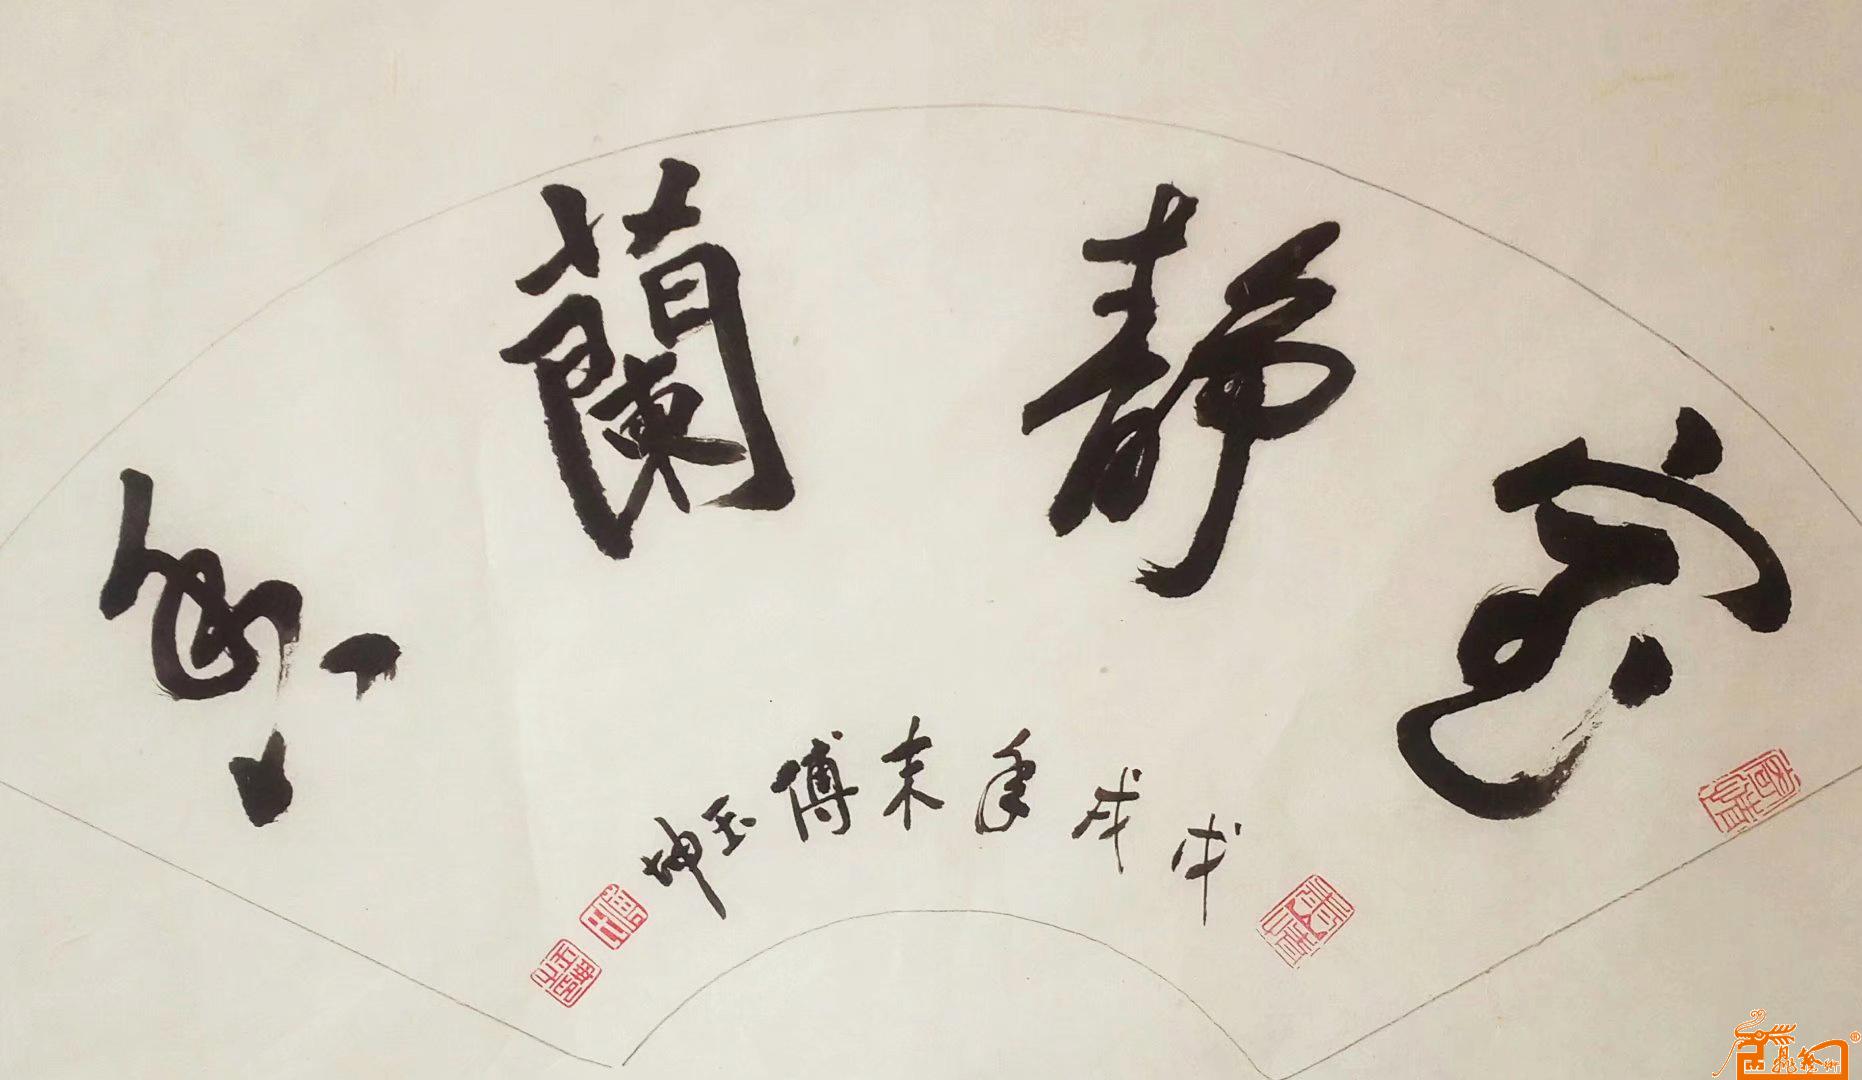 室静蘭香
戊戌年末傅玉坤